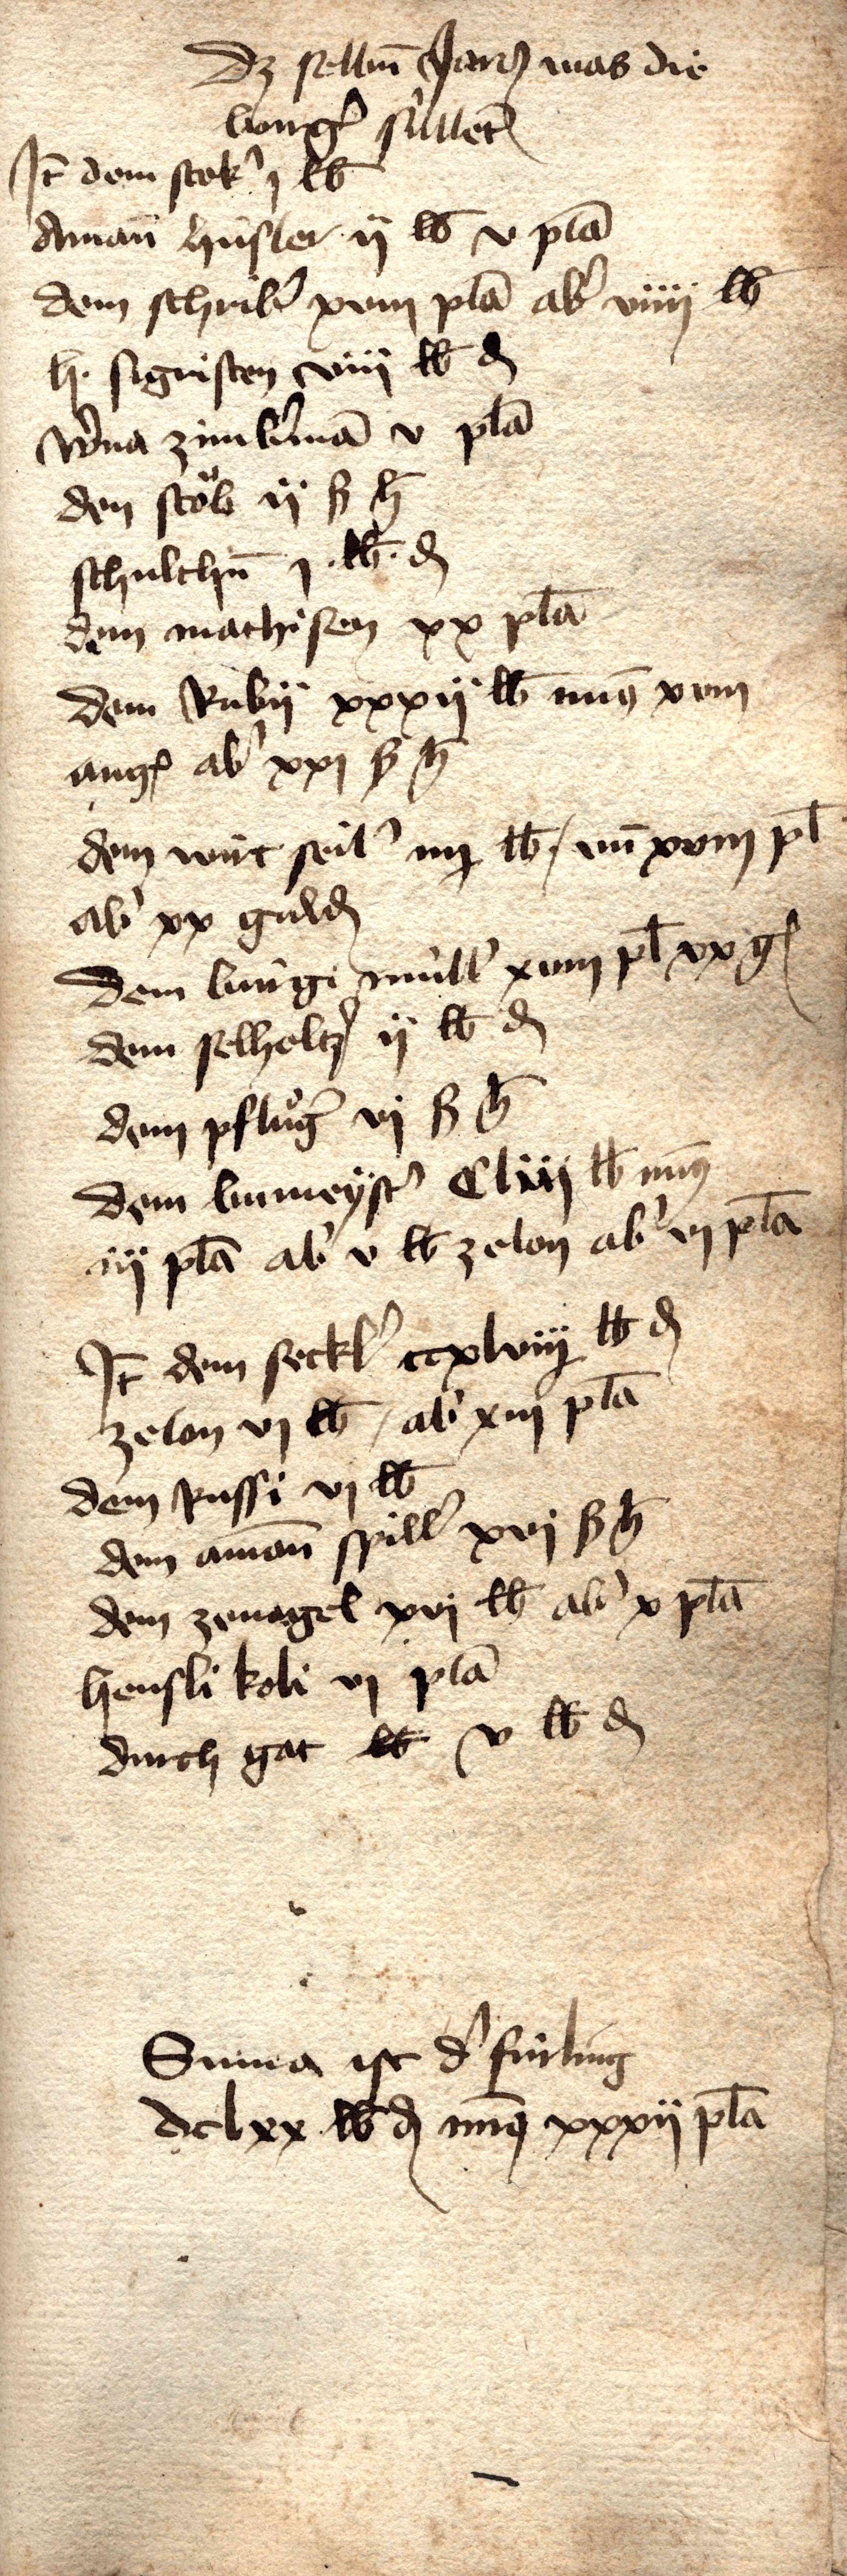 Dz selbñ Jares was die
burg' sûllet
It̄ dem stok' j lb
Amañ hûsler ij lb v pla̅
dem schrib' xviij pla̅ ab' viiij lb
h. sigristen viij lb d
W'na zimb'ma̅ v pla̅
den stôb ij ß h
schulthñ j . lb . d
dem mathisen xx pla̅
dem Rubÿ xxxij lb min9 xviij
ang' ab' xxj ß h
dem wirt seil' iiij lb / vñ xviij pl
ab' xx guld
dem bûrgi mûll' xviij pl xx g
dem selholtz' ij lb d
dem pflûg' vj ß h
dem bumeÿst' Cliij lb min9
iij pla̅ ab' v lb zelon ab' vj pla̅
It̄ dem seckl' ccxlviij lb d
zelon vj lb / ab' xiij pla̅
dem Russi vj lb
dem aman̄ spill' xvj ß h
dem zenagel xvj lb ab' x pla̅
hensli kobi vj pla̅
durch gat v lb d
Summa ist d' fûrling
dclxx lb d min9 xxxij pla̅